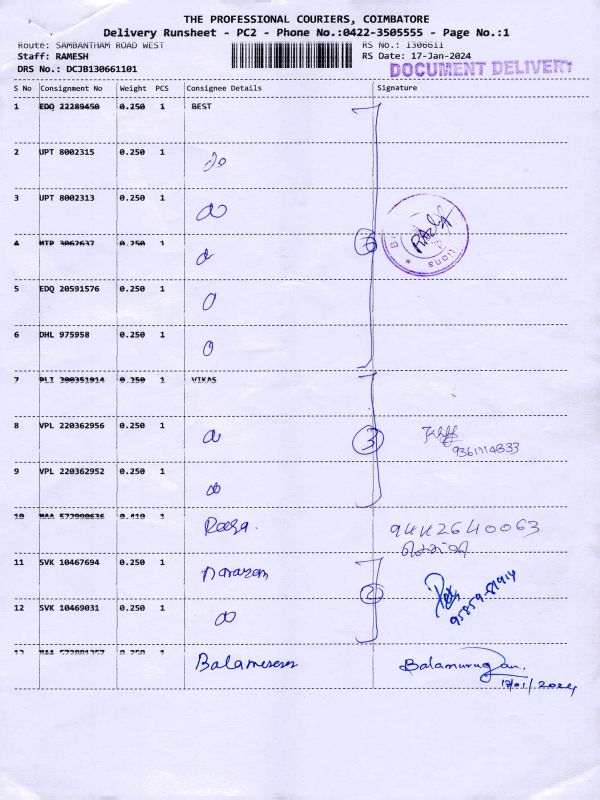 THE PROFESSIONAL COURIERS, COIMBATORE
Delivery Runsheet - PC2 - Phone No.:0422-3505555 - Page No.:1
Route: SAMBANTHAM ROAD WEST RS No.: 1306611
Staff: RAMESH RS Date: 17-Jan-2024
DRS No.: DCJB130661101 DOCUMENT DELIVERY
S No Consignment No Weight PCS Consignee Details Signature
1 EDQ 22289450 0.250 1 BEST
2 UPT 8002315 0.250 1
3 UPT 8002313 0.250 1
4 MTP 3062637 0.250 1
5 EDQ 20591576 0.250 1
6 DHL 975958 0.250 1
7 PLI 200351914 0.250 1 VIKAS
8 VPL 220362956 0.250 1
3 9361114833
9 VPL 220362952 0.250 1
10 MAA 1
9442640063
11 SVK 10467694 0.250 1
2
12 SVK 10469031 0.250 1
13 MAA 0.250 1
Balamurugan
17/01/2024